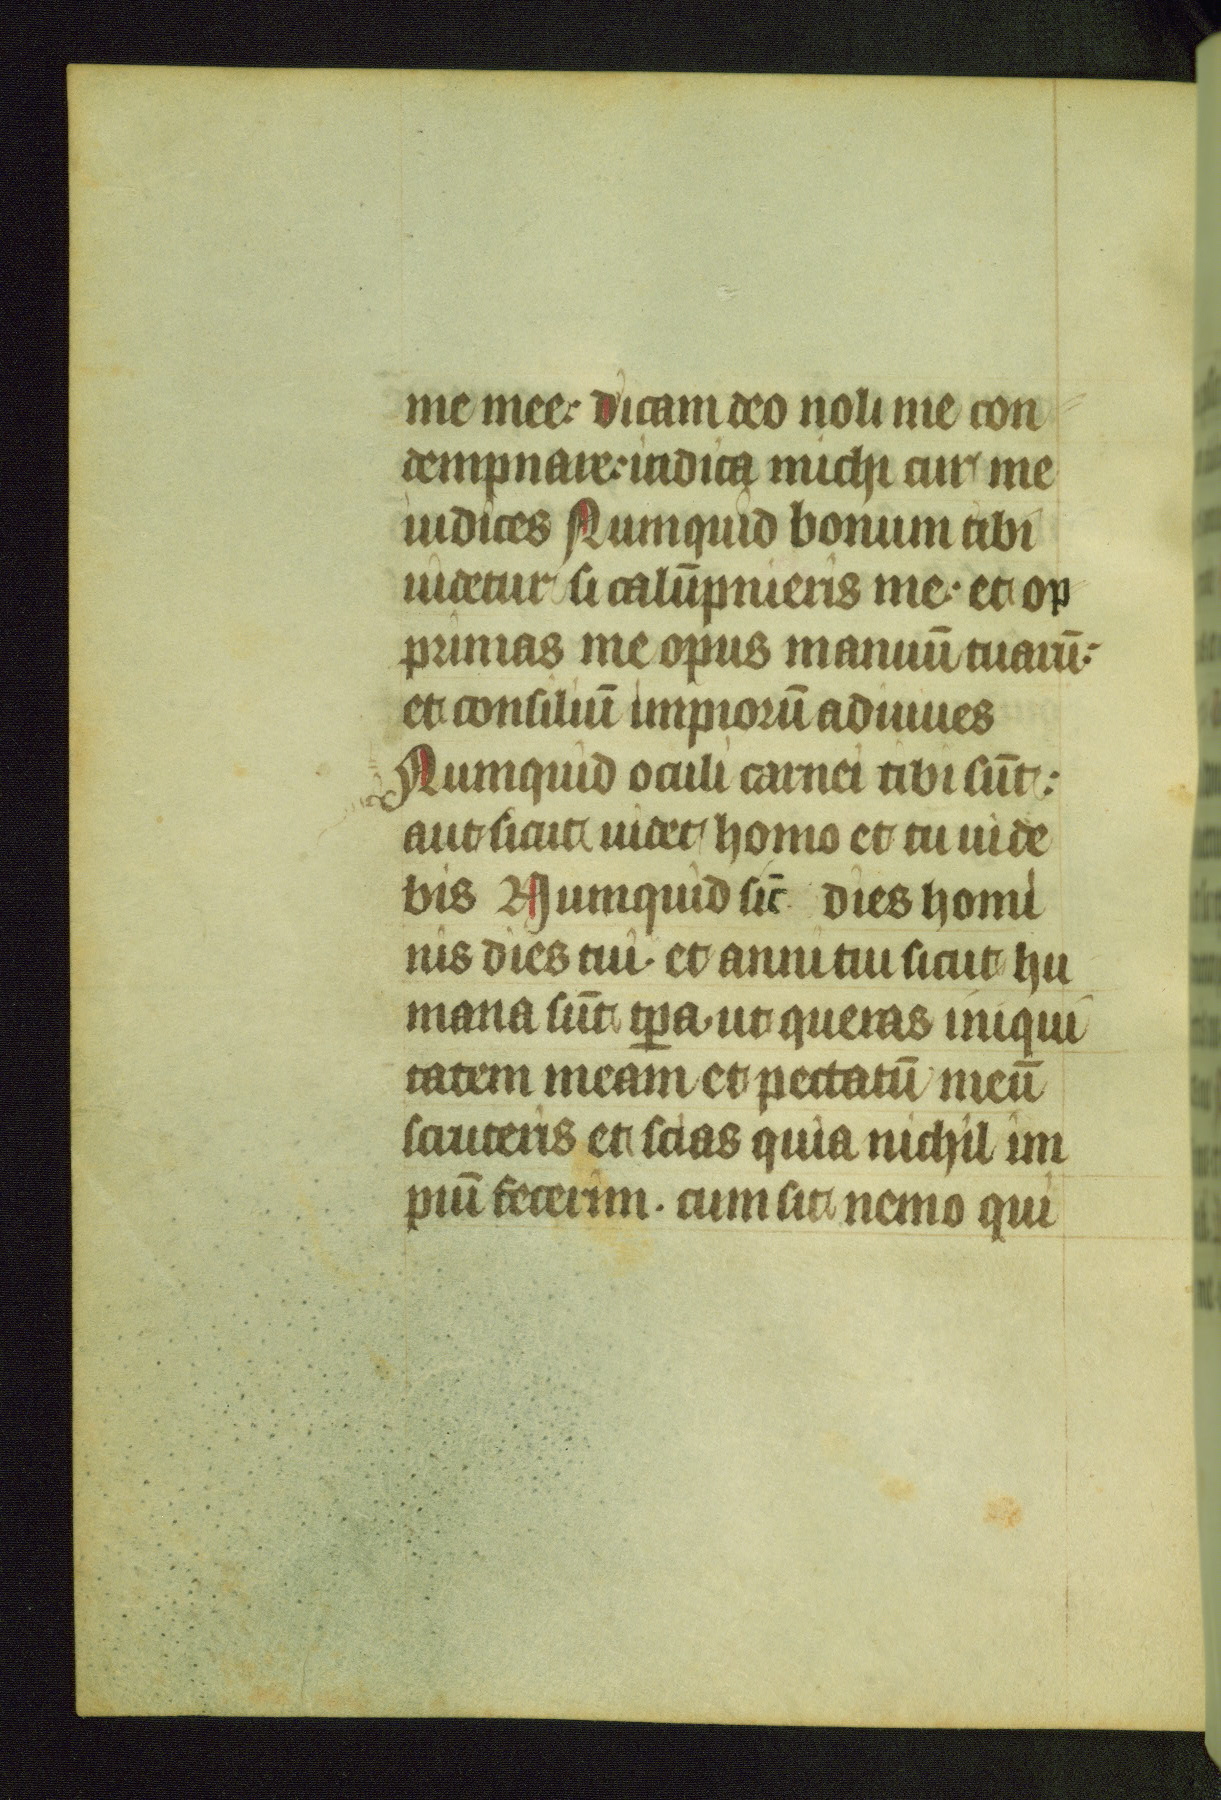 me mee: dicam deo noli me con
dempnare: indica michi cur me
iudices Numquid bonum tibi
uidetur si calūpnieris me: et op
primas me opus manuū tuarū:
et consiliū impiorū adiuues
Numquid oculi carnei tibi sūt:
aut sicut uidet homo et tu uide
bis Numquid sic̄ dies homi
nis dies tui. et anni tui sicut hu
mana sūt tꝑa. ut queras iniqui
tatem meam et peccatū meū
scruteris et scias quia nichil im
piū fecerim. cum sit nemo qui